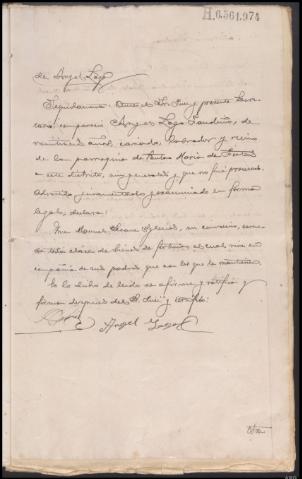 H.0.561.974
de Angel Lago
Seguidamente ante el Sr. Juez y presente Secre
tario compareció Angel Lago Landeira, de
veintiseis años, casado, labrador y vecino
de la parroquia de Santa Maria de
a este distrito, sin generales y que no fué procesado.
Advertido, juramentado y examinado en forma
legal, declara:
Que Manuel Seoane Iglesias, su convecino, care
ce de toda clase de bienes de fortuna el cual vive en
compañia de sus padres que son los que le mantienen.
En lo dicho de leido se afirma y ratifica y
firma despues del Sr. Juez y certifico.
Angel Lago